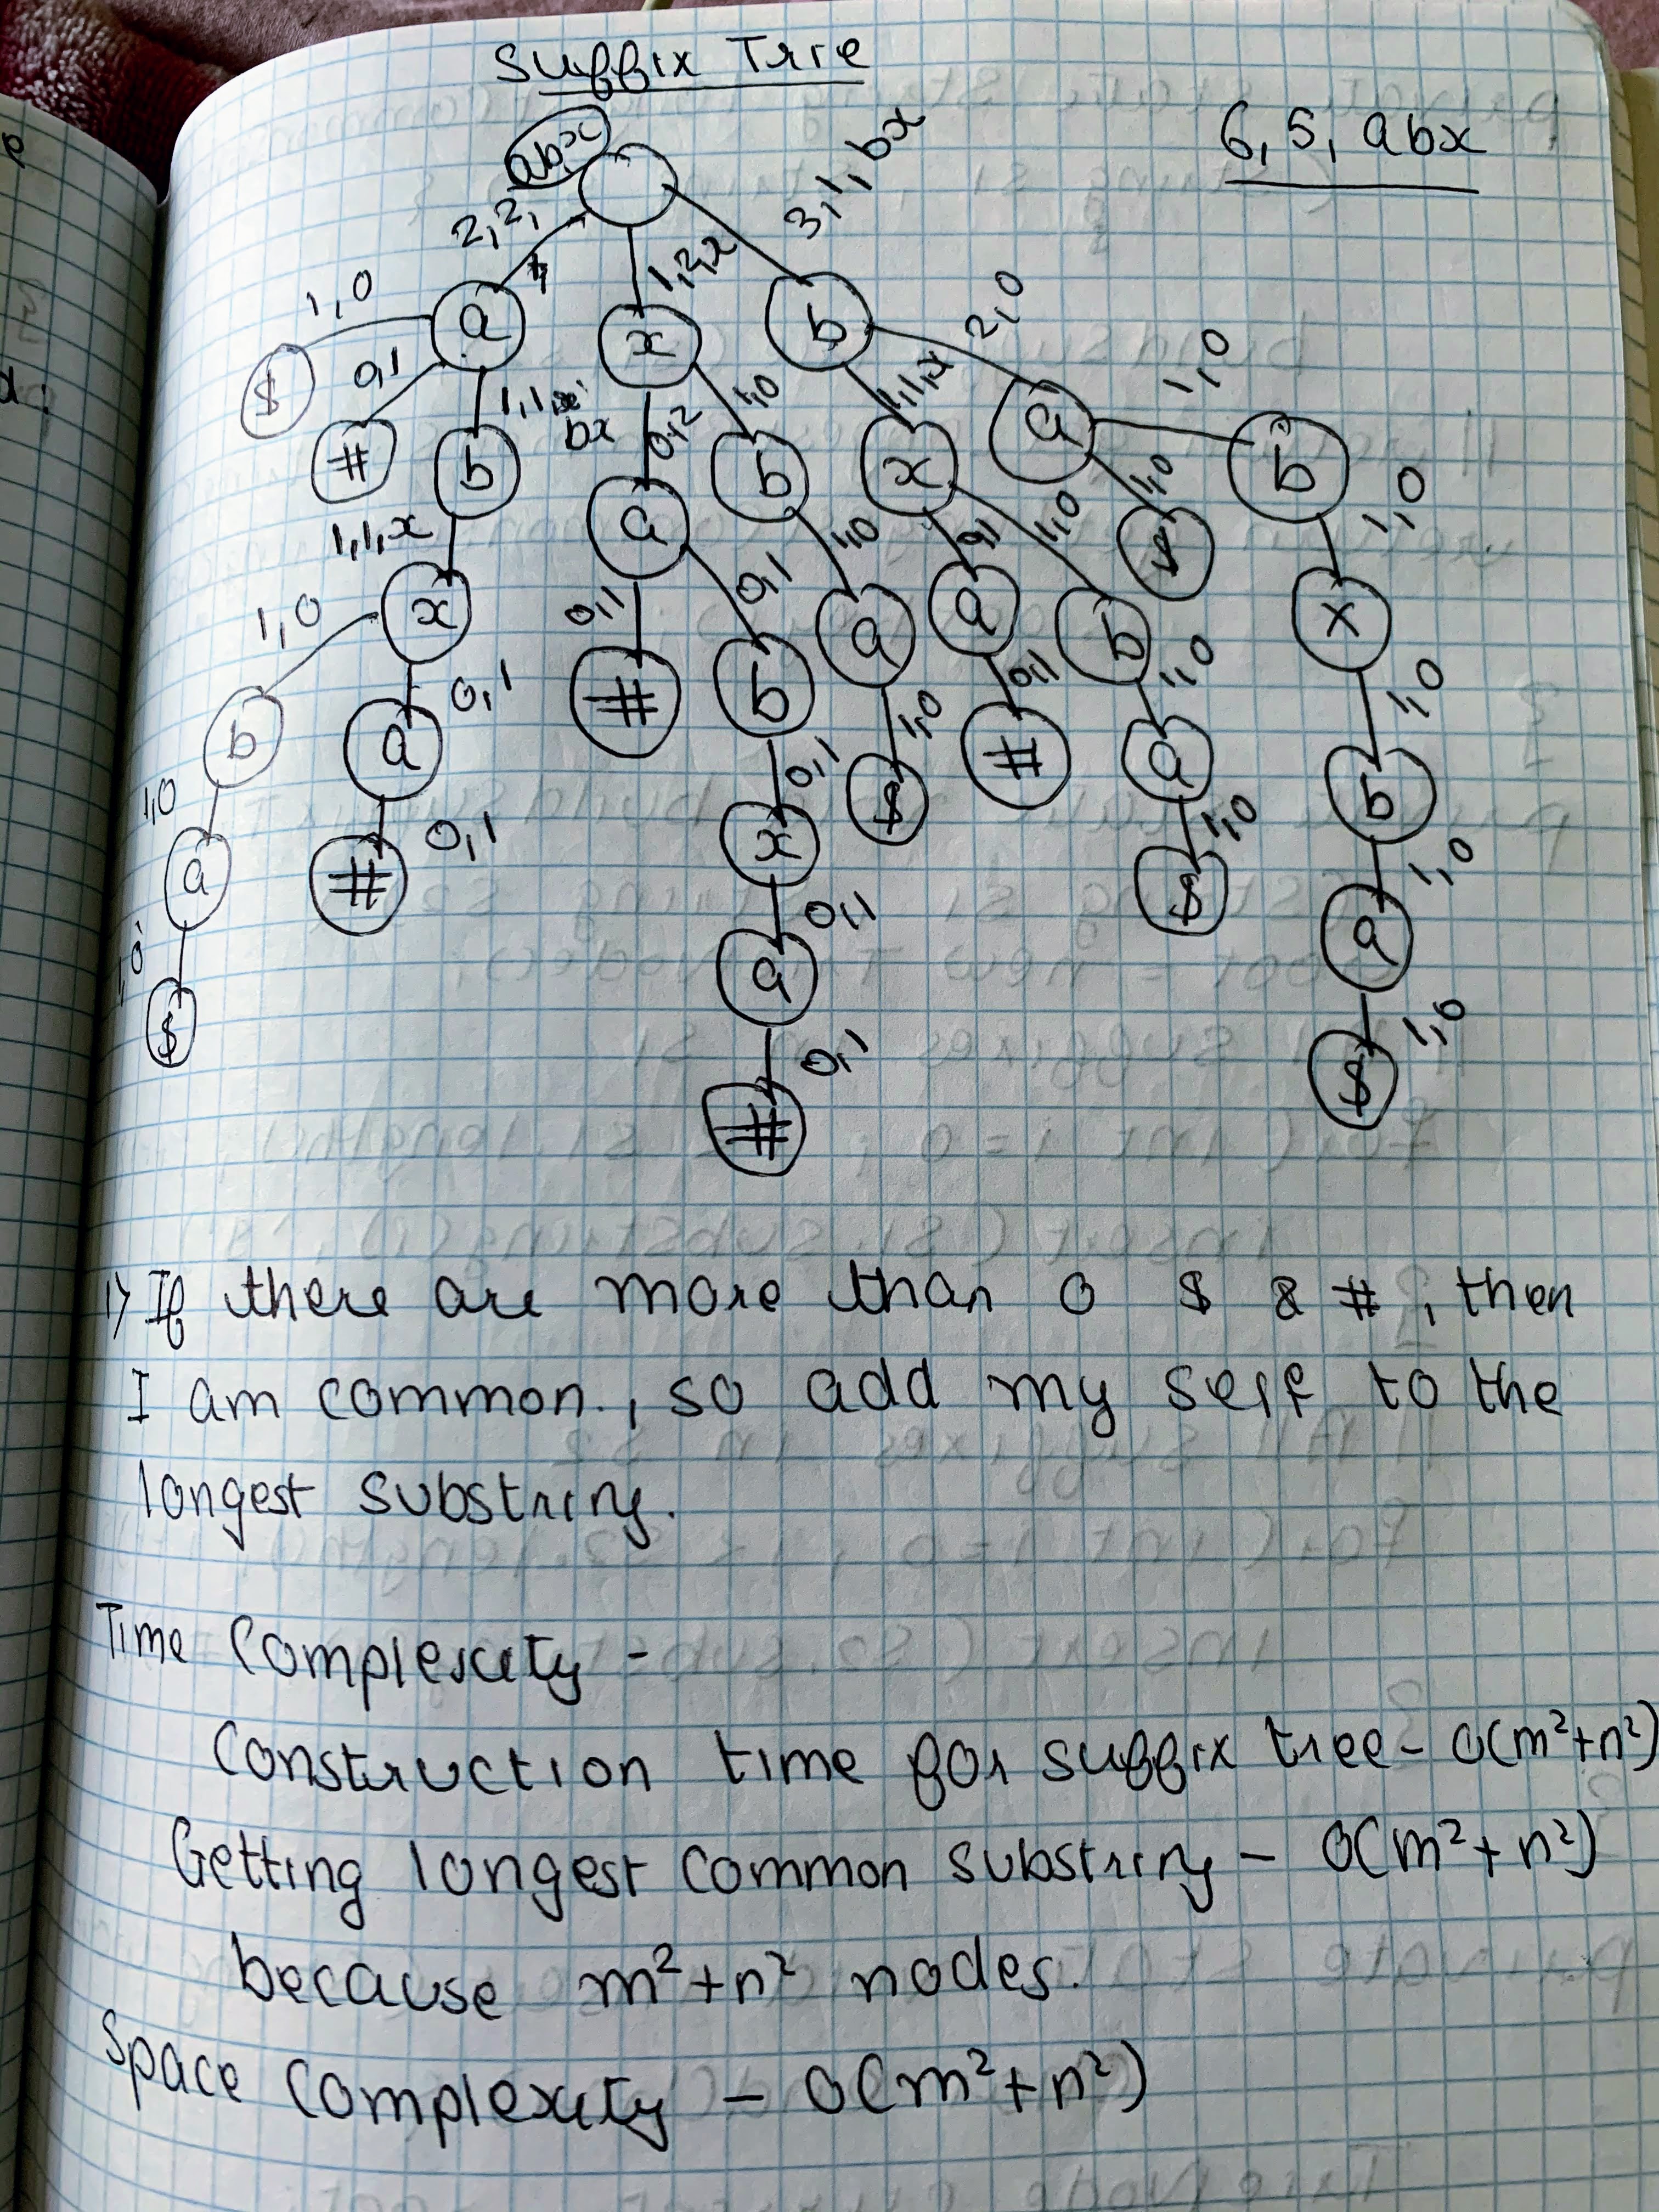 Suffix Trie
6, 5, abx
abx
2, 2,
1, 2, x
3, 1, bx
1, 0
a
x
b
2, 0
$
0, 1
1, 1,
bx
0, 2
1, 0
1, 1, x
a
1, 0
#
b
a
b
x
1, 0
b
1, 1, x
0, 1
1, 0
0, 1
1, 0
$
1, 0
1, 0
x
0, 1
#
b
a
a
b
x
b
a
0, 1
0, 1
$
1, 0
0, 1
#
1, 0
a
1, 0
b
1, 0
a
#
0, 1
x
$
1, 0
1, 0
$
a
0, 1
a
1, 0
$
0, 1
#
$
1) If there are more than 0 $ & #, then
I am common, so add my self to the
longest substring.
Time Complexity -
Construction time for suffix tree - O(m²+n²)
Getting longest common substring - O(m²+n²)
because m²+n² nodes.
Space Complexity - O(m²+n²)